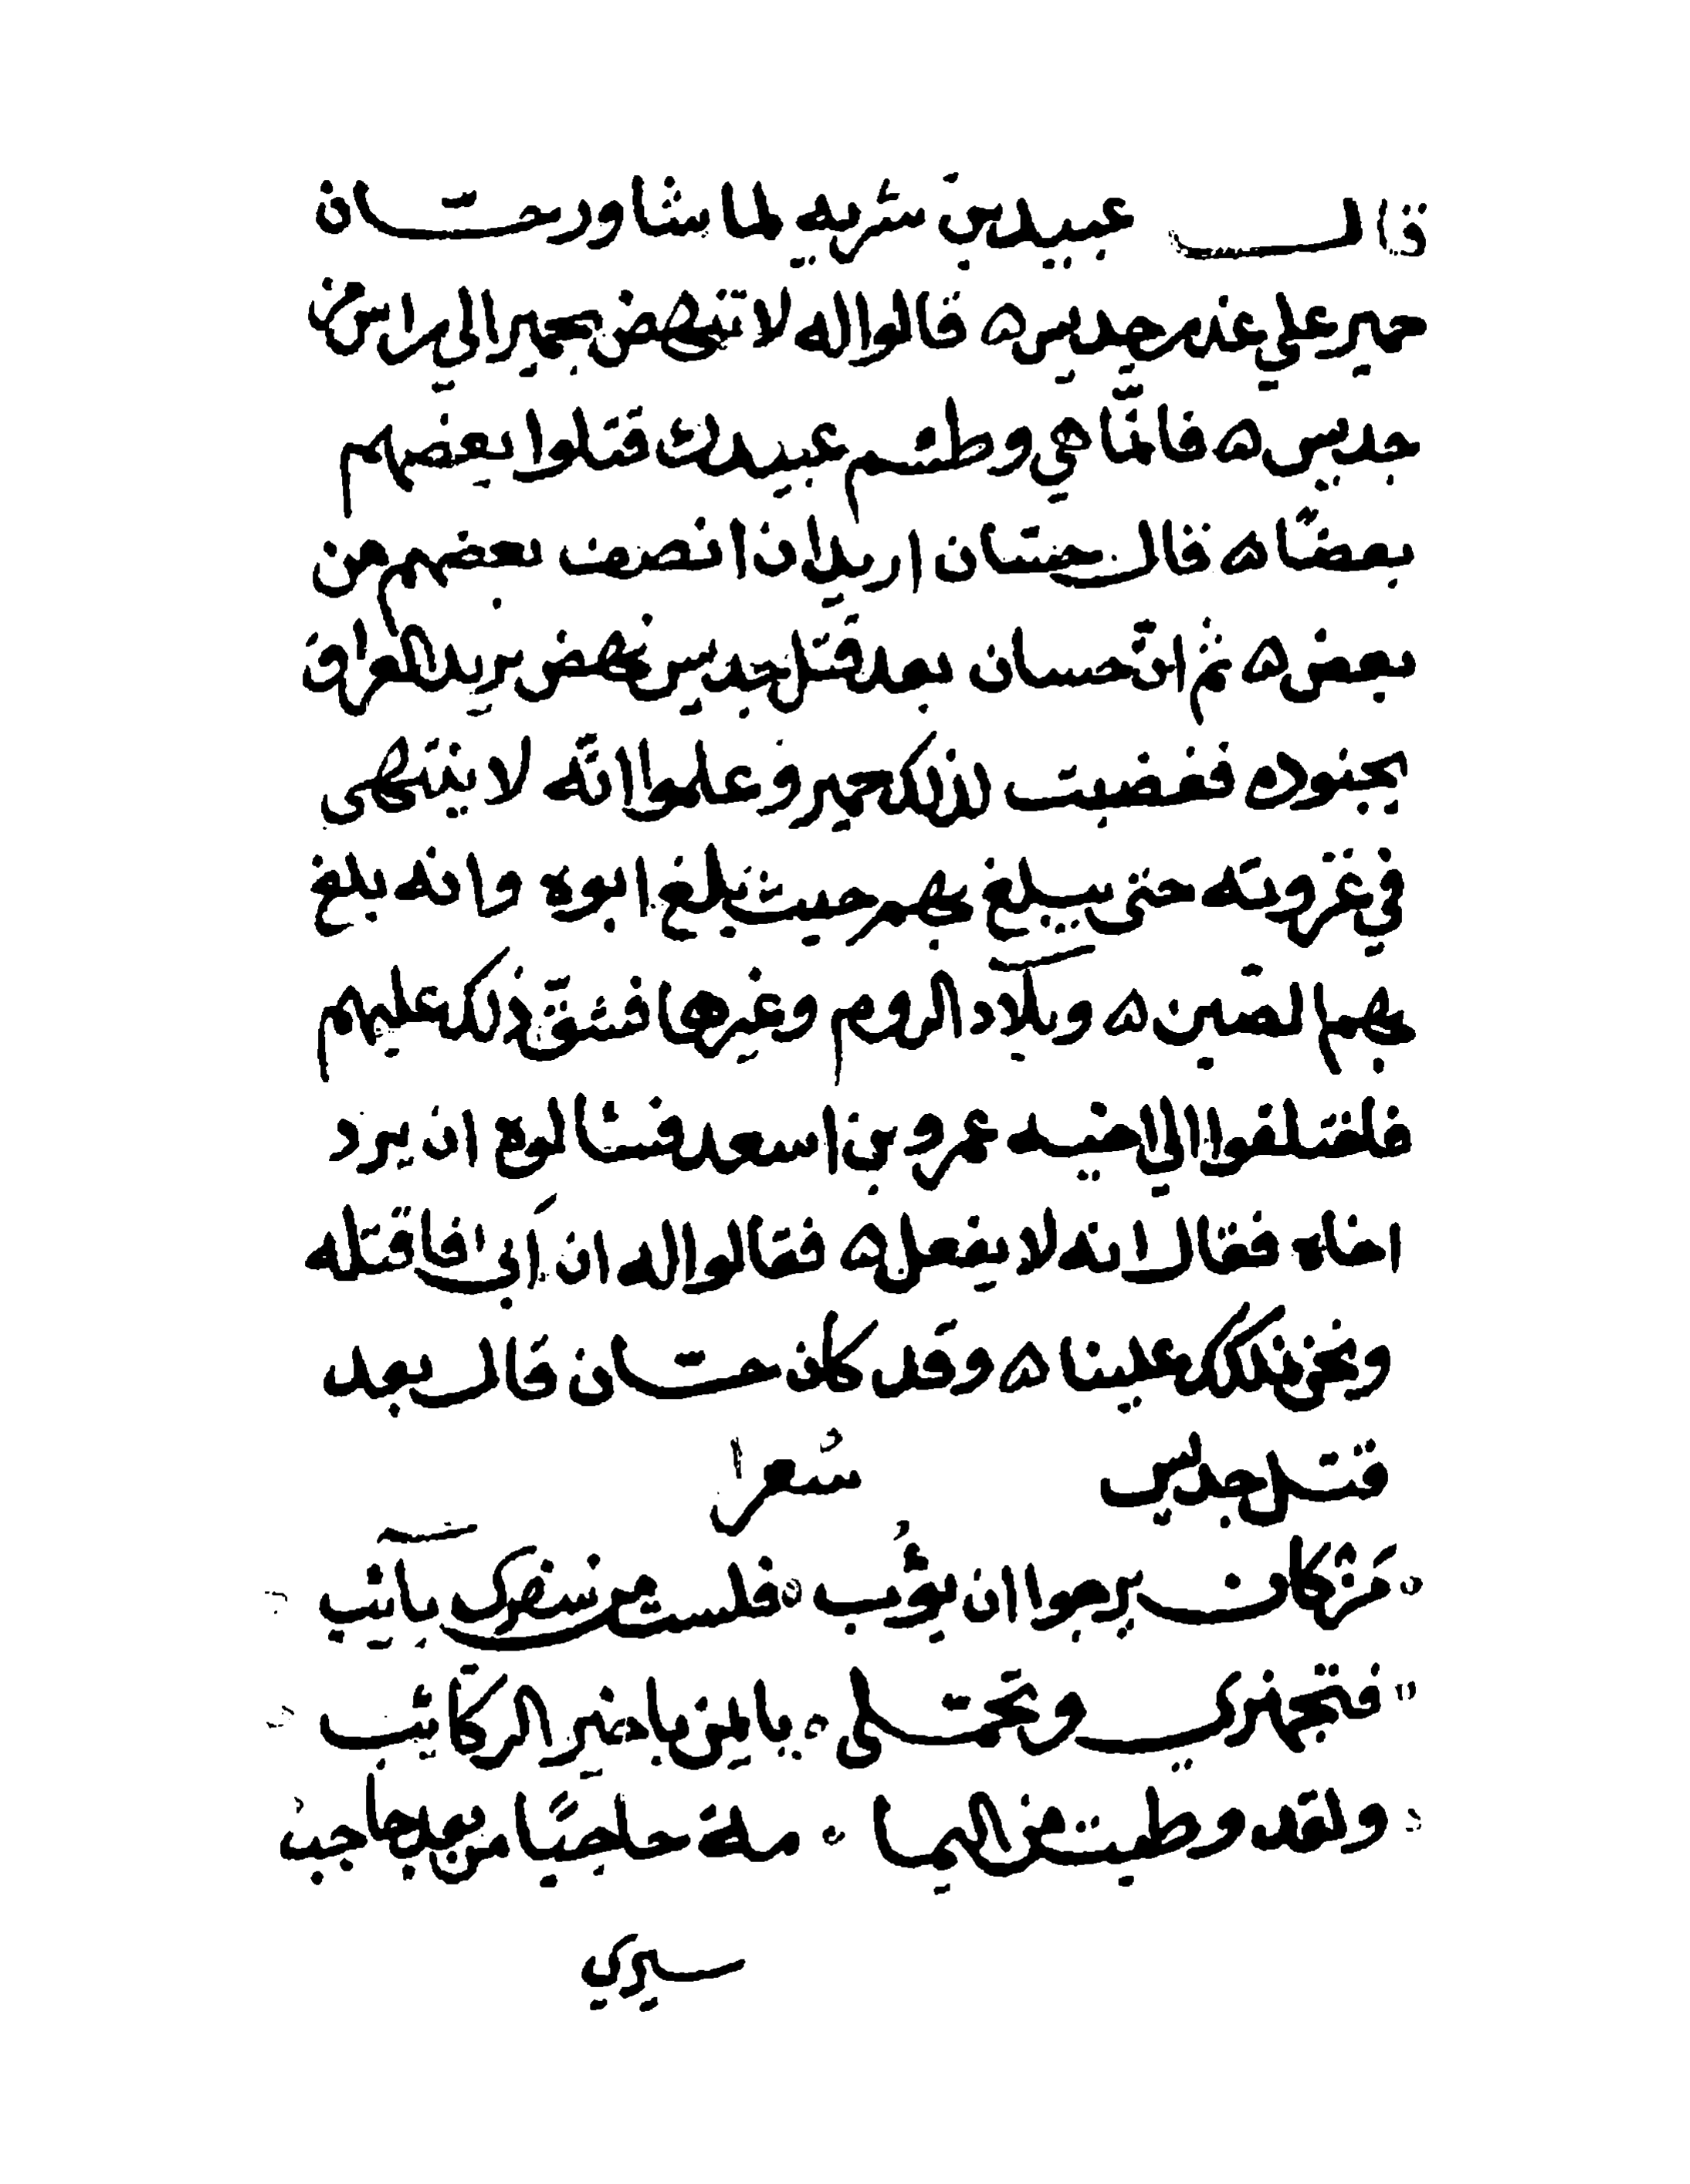 قال عبيد بن شريه لما شاور حسان
حمير على غذر جديس ه قالوا له لا تنهض بحمير الى راس من
جديس ه فانما هي وطسم عبيدك قتلوا بعضهم
بعضا ه قال حسان اريد ان انصف بعضهم من
بعض ه ثم ان حسان بعد قتل جديس نهض يريد العراق
بجنوده فغضبت لذلك حمير وعلموا انه لا ينتهى
في غزوته حتى يبلغ بهم حيث بلغ ابوه وانه بلغ
بهم الصين ه وبلاد الروم وغيرها فشق ذلك عليهم
فاختلفوا الي اخيه عمرو بن اسعد فسالوه ان يرد
اخاه فقال انه لا يفعل ه فقالوا له ان أبى فاقتله
ونحن نملكك علينا ه وقد كان حسان قال بعد
قتل جديس شعرا
من كان يرجوا ان يؤب ه فلست من سفرى بآئب
فتجهزي وتحملى ه يا يمن يا خير الركائب
ولقد وطيت من اليما ه مة حاجبًا من بعد حاجب
سيري